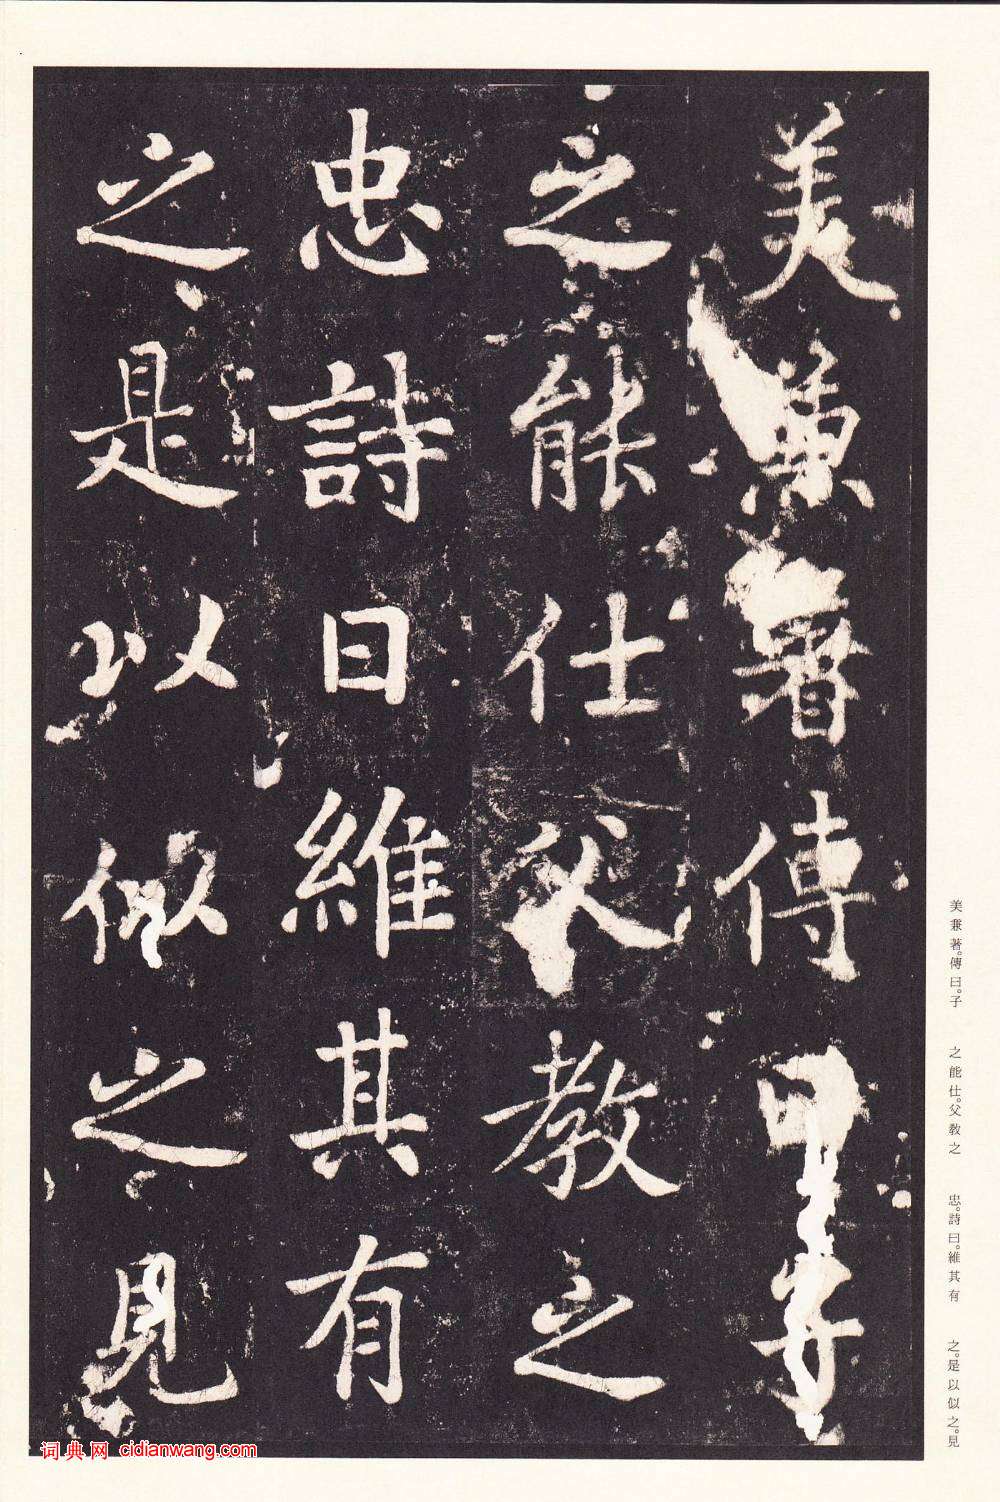 美兼著傳曰子
之能仕父教之
忠詩曰維其有
之是以似之見
美兼著。傳曰。子 之能仕。父教之 忠。詩曰。維其有 之。是以似之。見
词典网 cidianwang.com